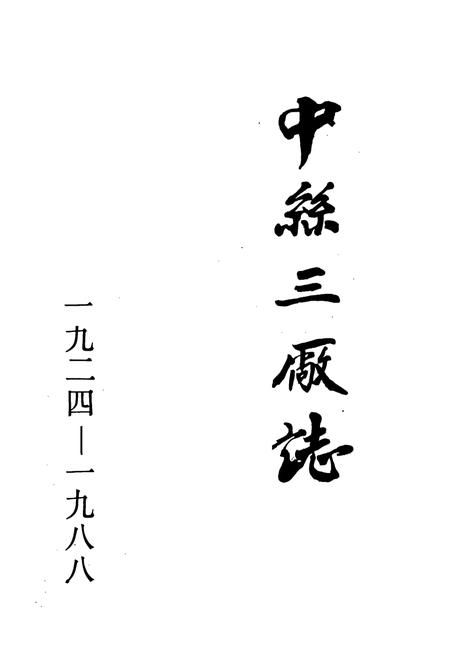 中絲三廠誌
一九二四—一九八八